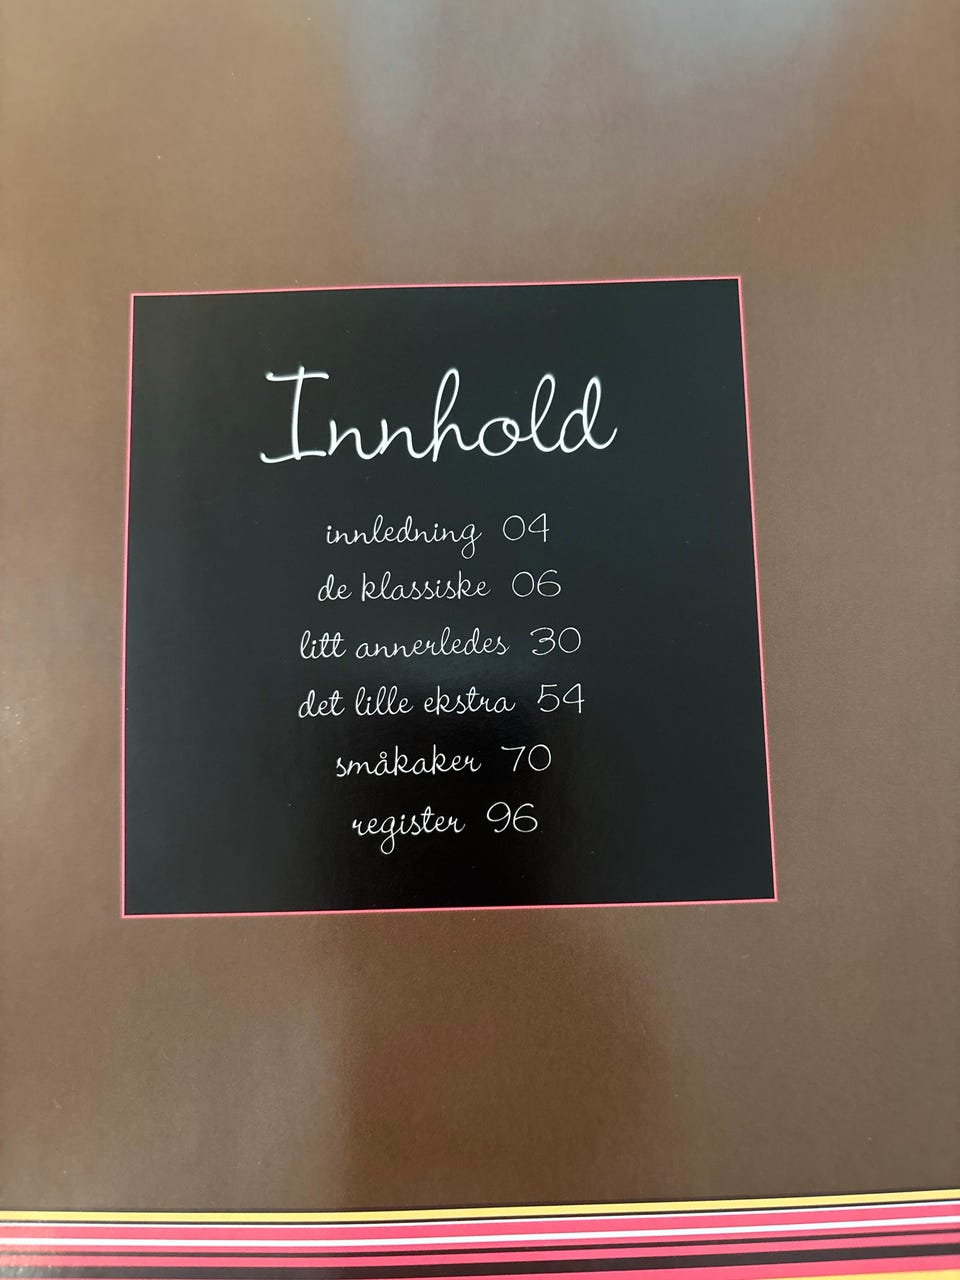 Innhold
innledning 04
de klassiske 06
litt annerledes 30
det lille ekstra 54
småkaker 70
register 96